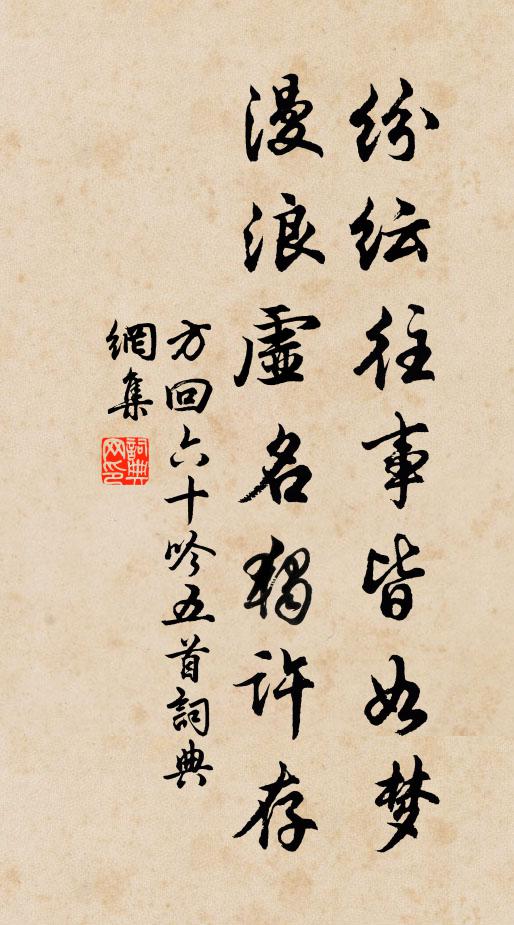 纷纭往事皆如梦
漫浪虛名獨許存
方回六十吟五首詞典
網集
詞典网印